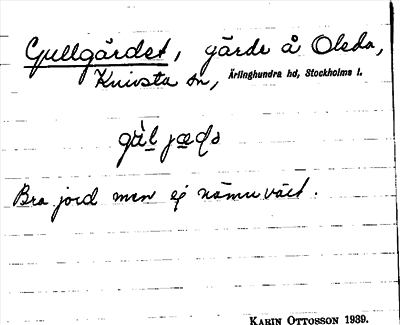 Gullgärdet, gärde å Olsda,
Knivsta sn, Ärlinghundra hd, Stockholms l.
Bra jord men ej
KARIN OTTOSSON 1939.